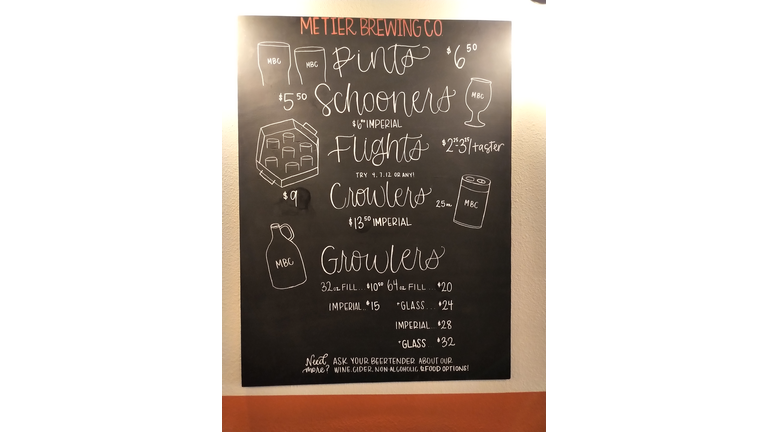 METIER BREWING CO
MBC MBC Pints $6 50
$5 50 Schooners MBC
$6 50 IMPERIAL
Flights $2 25-3 25/taster
TRY 4, 7, 12 OR ANY!
$9 Crowlers 25oz MBC
$13 50 IMPERIAL
MBC Growlers
32oz FILL.. $10 50 64oz FILL... $20
IMPERIAL.. $15 *GLASS... $24
IMPERIAL.. $28
*GLASS $32
Need more? ASK YOUR BEERTENDER ABOUT OUR
WINE, CIDER, NON-ALCOHOLIC & FOOD OPTIONS!